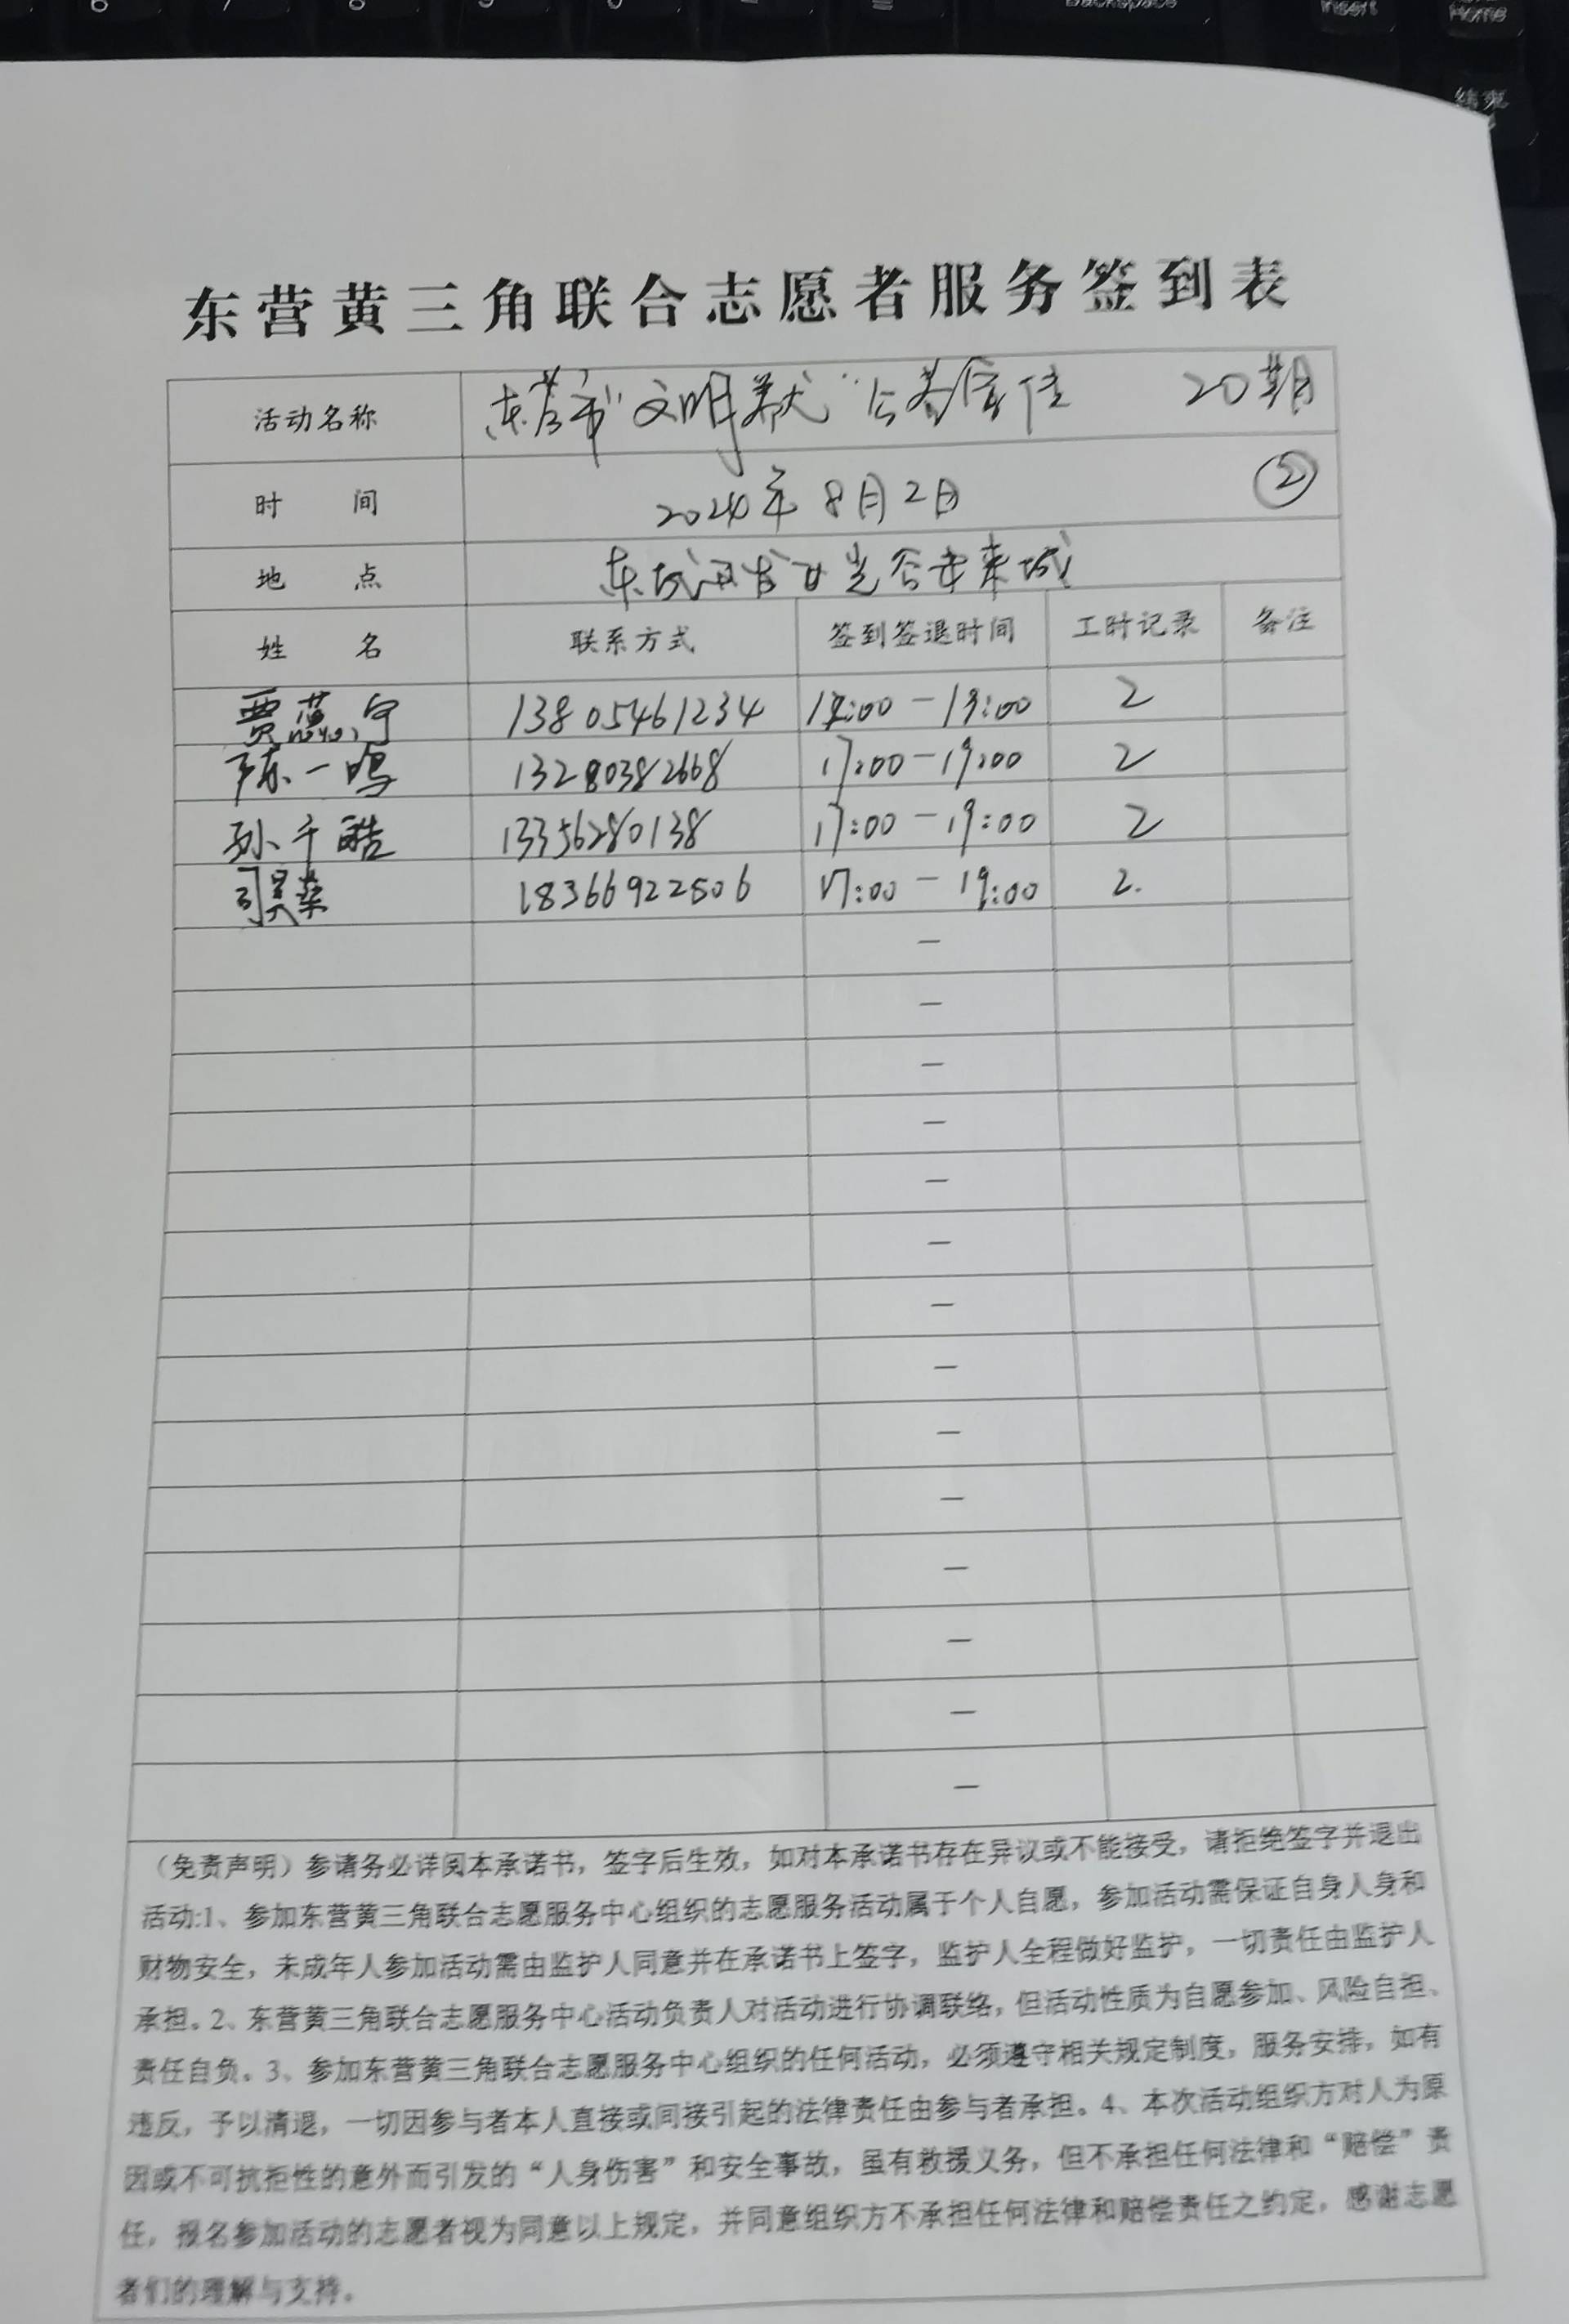 东营黄三角联合志愿者服务签到表
活动名称 东营市“文明养犬”公益宣传 20期
时 间 2024年8月2日 ②
地 点 东城 未来城
姓 名 联系方式 签到签退时间 工时记录 备注
贾蕙宁 13805461234 17:00-19:00 2
陈一鸣 13280382668 17:00-19:00 2
孙千皓 13356280138 17:00-19:00 2
司昊燊 18366922506 17:00-19:00 2.
—
—
—
—
—
—
—
—
—
—
—
—
—
—
（免责声明）参请务必详阅本承诺书，签字后生效，如对本承诺书存在异议或不能接受，请拒绝签字并退出
活动:1、参加东营黄三角联合志愿服务中心组织的志愿服务活动属于个人自愿，参加活动需保证自身人身和
财物安全，未成年人参加活动需由监护人同意并在承诺书上签字，监护人全程做好监护，一切责任由监护人
承担。2、东营黄三角联合志愿服务中心活动负责人对活动进行协调联络，但活动性质为自愿参加、风险自担、
责任自负。3、参加东营黄三角联合志愿服务中心组织的任何活动，必须遵守相关规定制度，服务安排，如有
违反，予以清退，一切因参与者本人直接或间接引起的法律责任由参与者承担。4、本次活动组织方对人为原
因或不可抗拒性的意外而引发的“人身伤害”和安全事故，虽有救援义务，但不承担任何法律和“赔偿”责
任，报名参加活动的志愿者视为同意以上规定，并同意组织方不承担任何法律和赔偿责任之约定，感谢志愿
者们的理解与支持。